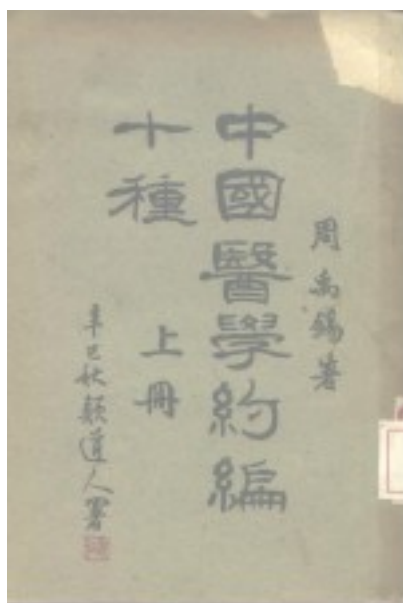 周禹錫著
中國醫學約編
十種
上冊
辛巳秋顛道人署